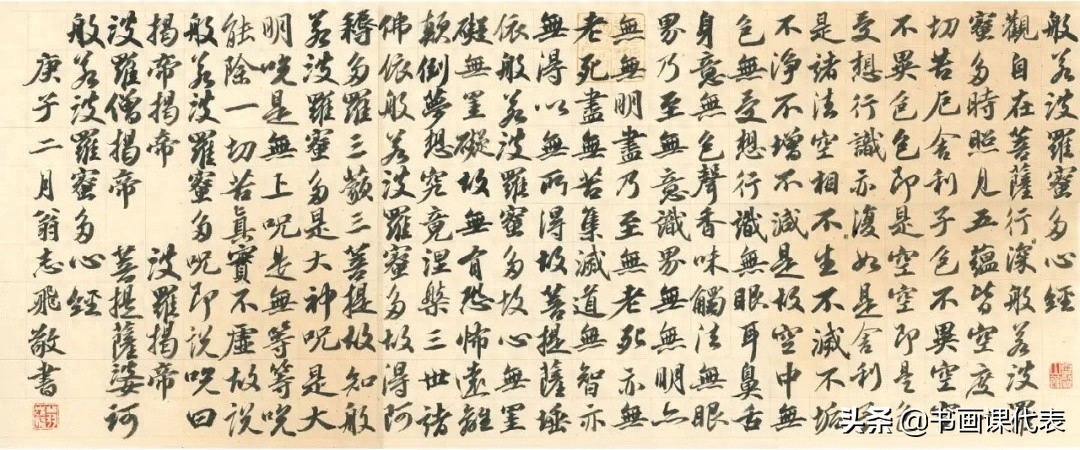 般若波羅蜜多心經
觀自在菩薩行深般若波羅
蜜多時照見五蘊皆空度
切苦厄舍利子色不異空空
不異色色即是空空即是色
受想行識亦復如是舍利
是諸法空相不生不滅不垢
不淨不增不減是故空中無
色無受想行識無眼耳鼻舌
身意無色聲香味觸法無眼
界乃至無意識界無無明亦
無無明盡乃至無老死亦無
老死盡無苦集滅道無智亦
無得以無所得故菩提薩埵
依般若波羅蜜多故心無罣
礙無罣礙故無有恐怖遠離
顛倒夢想究竟涅槃三世諸
佛依般若波羅蜜多故得阿
耨多羅三藐三菩提故知般
若波羅蜜多是大神呪是大
明呪是無上呪是無等等呪
能除一切苦真實不虛故說
般若波羅蜜多呪即說呪曰
揭帝揭帝 波羅揭帝
波羅僧揭帝 菩提薩婆訶
般若波羅蜜多心經
庚子二月翁志飛敬書
头条 @书画课代表